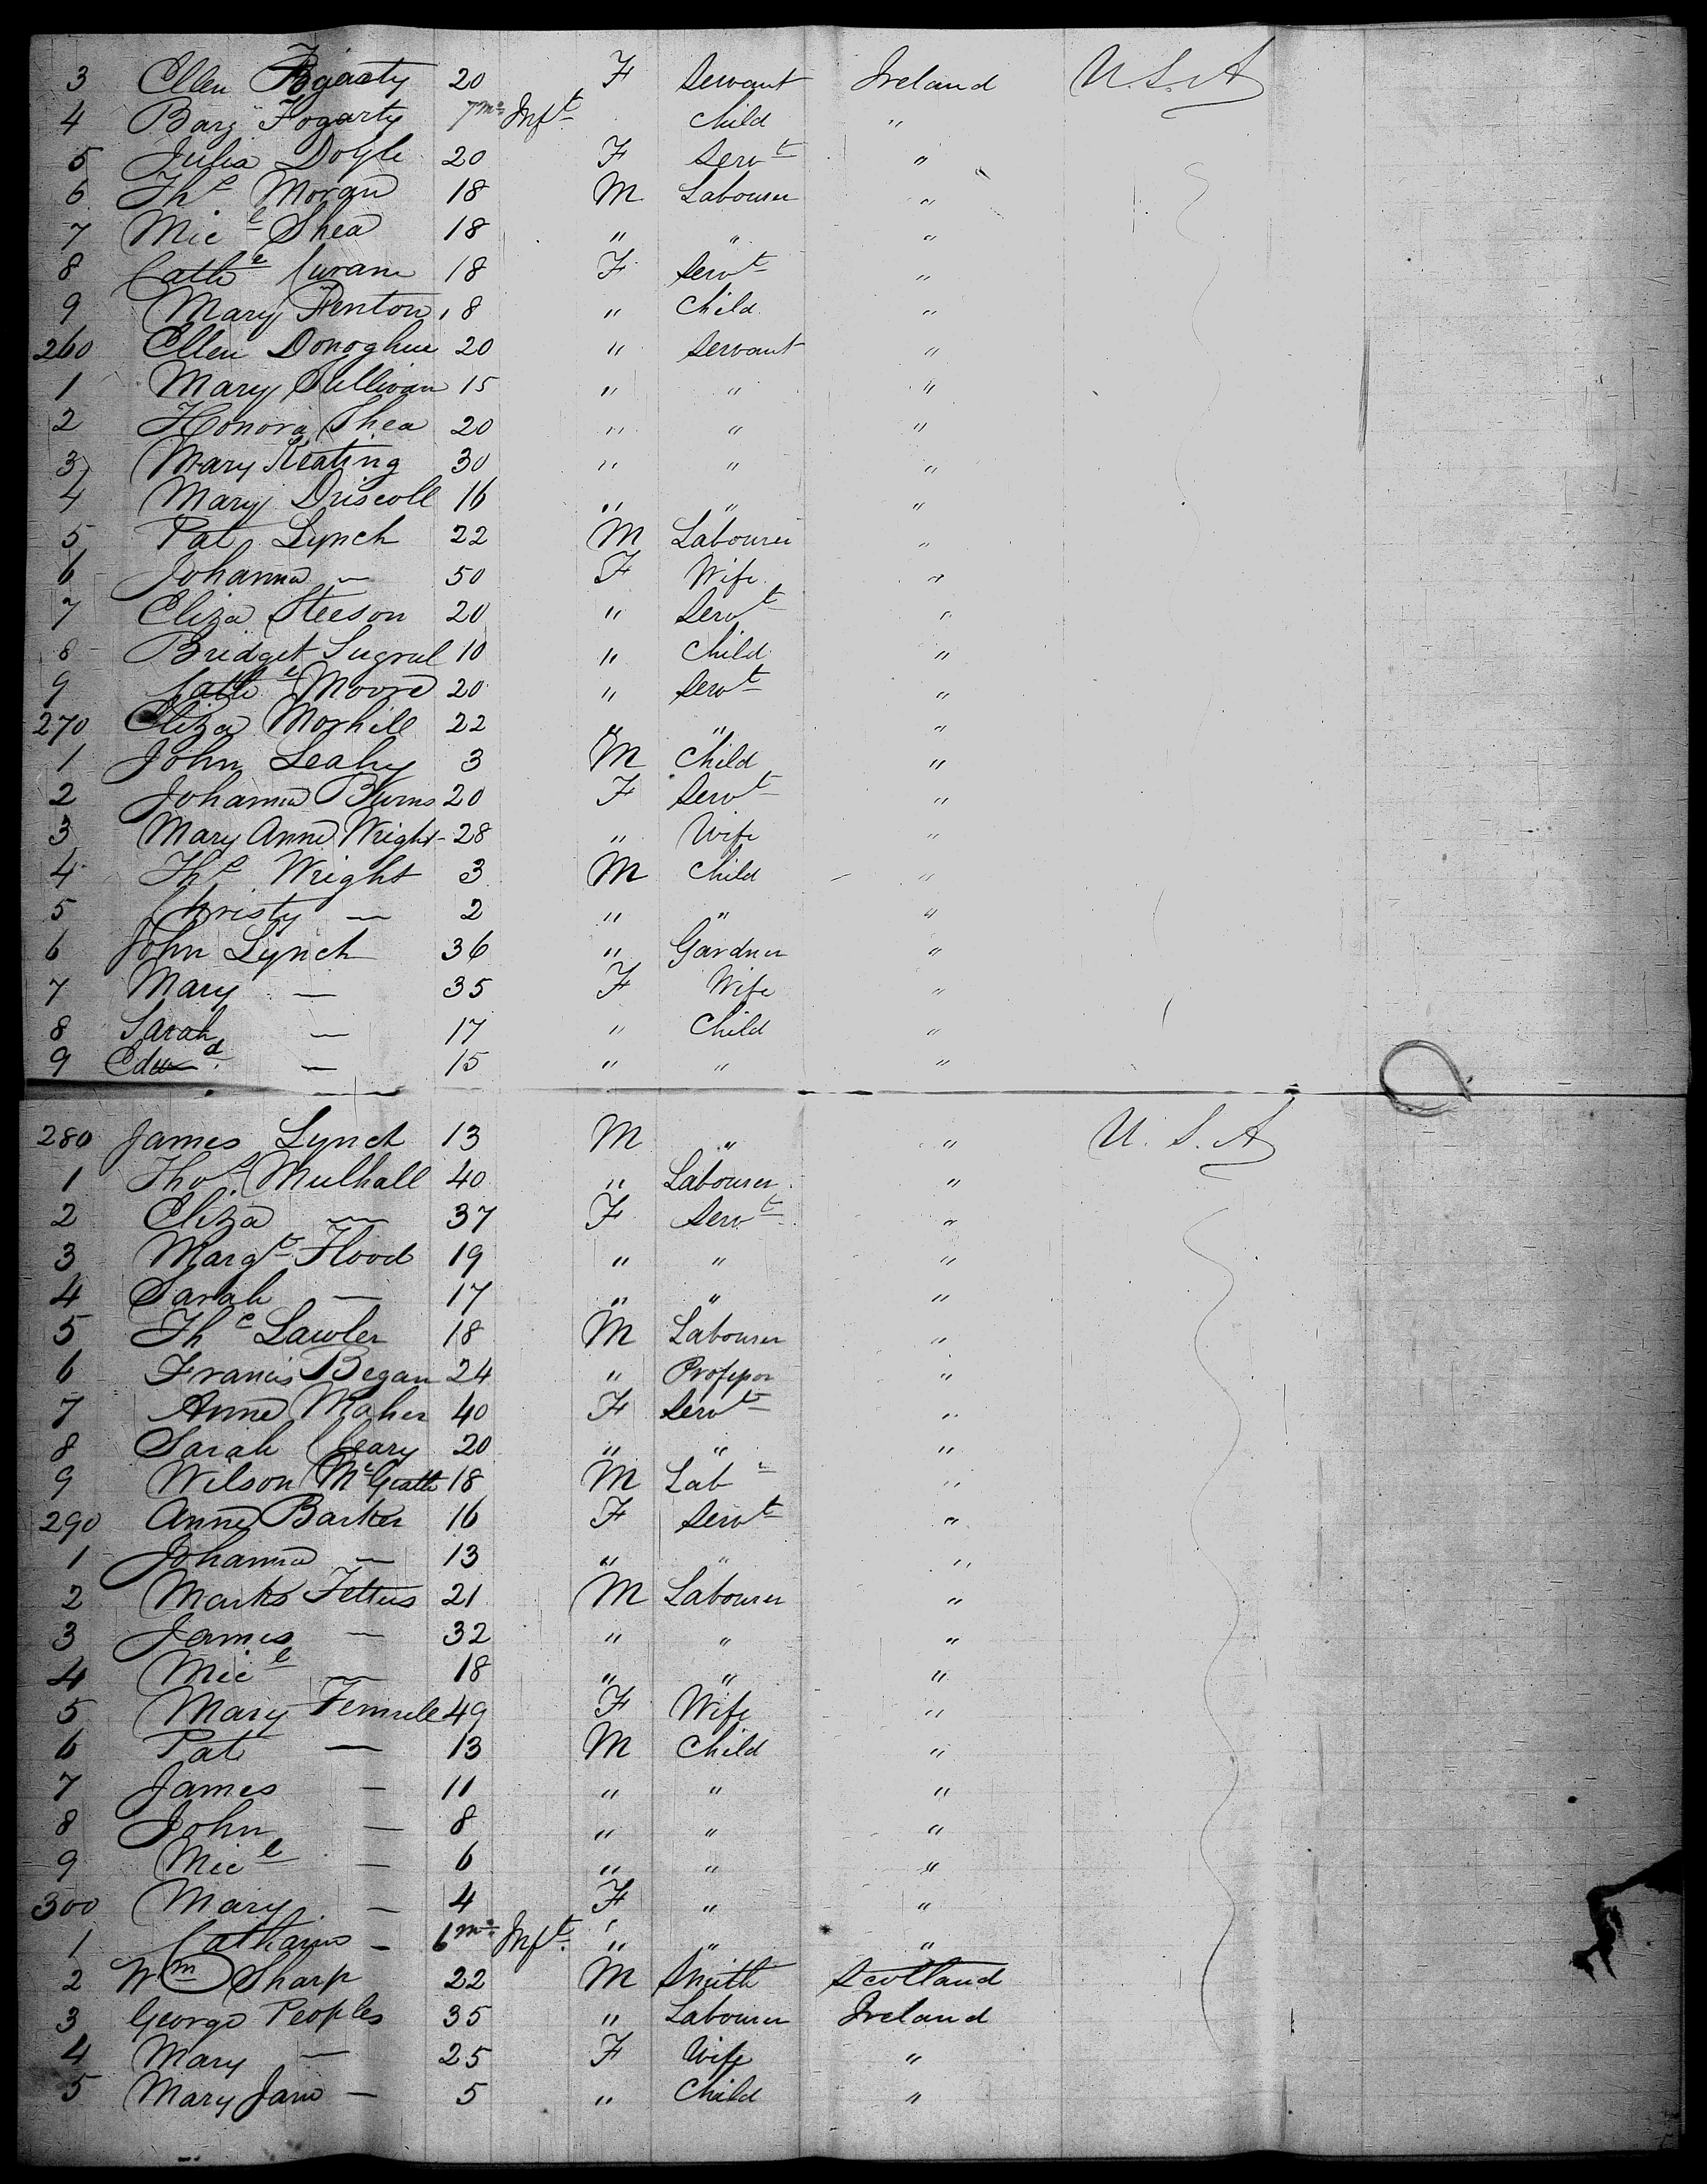 3 Ellen Fogarty 20 F Servant Ireland U.S.A
4 Barg Fogarty 7mo Inft Child "
5 Julia Doyle 20 F Servt "
6 Ths Moran 18 M Labourer "
7 Micl Shea 18 " " "
8 Cathe Curane 18 F Servt "
9 Mary Fenton 8 " Child "
260 Ellen Donoghue 20 " Servant "
1 Mary Sullivan 15 " " "
2 Honora Shea 20 " " "
3 Mary Keating 30 " " "
4 Mary Driscoll 16 " " "
5 Pat Lynch 22 M Labourer "
6 Johanna — 50 F Wife "
7 Eliza Steeson 20 " Servt "
8 Bridget Sugrul 10 " Child "
9 Cathe Moore 20 " Servt "
270 Eliza Morhill 22 " " "
1 John Leahy 3 M Child "
2 Johanna Burns 20 F Servt "
3 Mary Anne Wright 28 " Wife "
4 Ths Wright 3 M Child "
5 Christy — 2 " " "
6 John Lynch 36 " Gardner "
7 Mary — 35 F Wife "
8 Sarah — 17 " Child "
9 Edwd — 15 " " "
280 James Lynch 13 M " " U.S.A
1 Thos Mulhall 40 " Labourer "
2 Eliza — 37 F Servt "
3 Margt Flood 19 " " "
4 Sarah — 17 " " "
5 Ths Lawler 18 M Labourer "
6 Francis Began 24 " Professor "
7 Anne Maher 40 F Servt "
8 Sarah Cleary 20 " " "
9 Wilson McGrath 18 M Labr "
290 Anne Barker 16 F Servt "
1 Johanna — 13 " " "
2 Marks Fettus 21 M Labourer "
3 James — 32 " " "
4 Micl — 18 " " "
5 Mary Femrell 49 F Wife "
6 Pat — 13 M Child "
7 James — 11 " " "
8 John — 8 " " "
9 Micl — 6 " " "
300 Mary — 4 F " "
1 Catharine — 6mo Inft " " "
2 Wm Sharp 22 M Smith Scotland
3 George Peoples 35 " Labourer Ireland
4 Mary — 25 F Wife "
5 Mary Jane — 5 " Child "